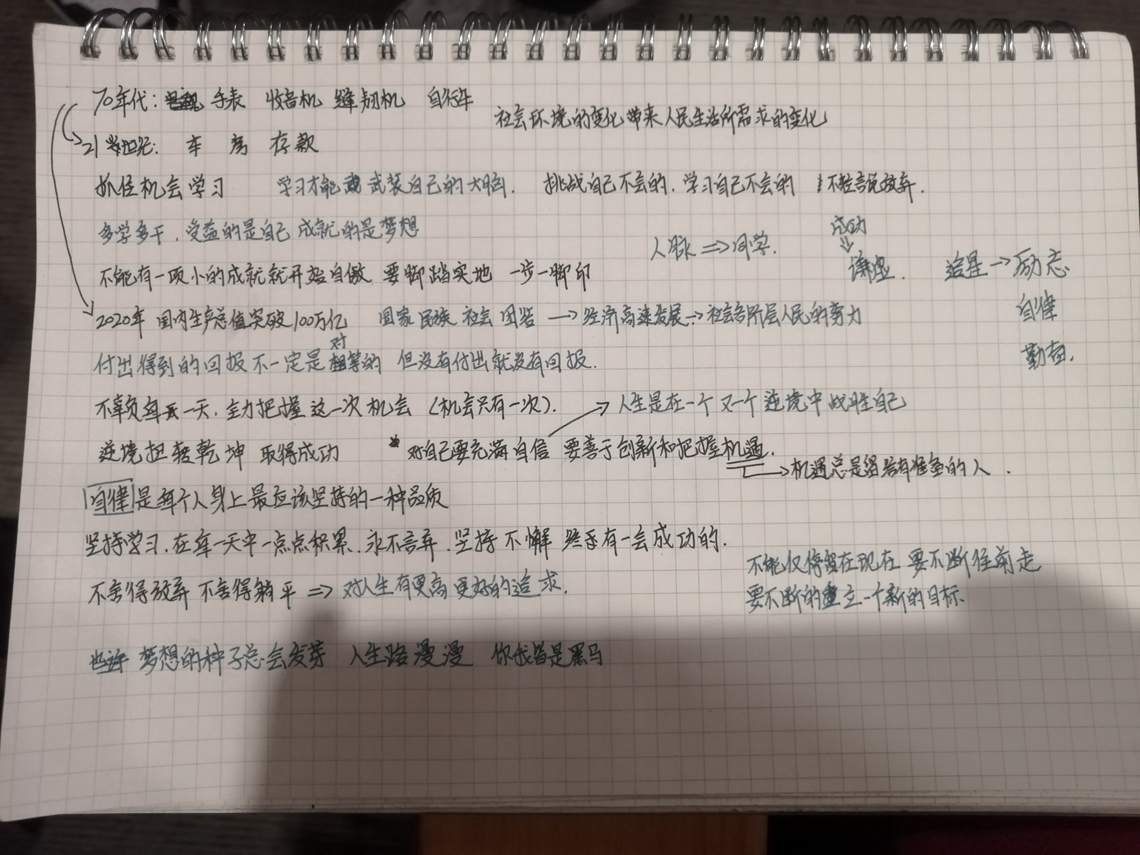 70年代: 手表 收音机 缝韧机 自行车
社会环境的变化带来人民生活所需求的变化
21世纪: 车 房 存款
抓住机会学习 学习才能武装自己的大脑. 挑战自己不会的, 学习自己不会的 不轻言放弃.
多学多干, 受益的是自己 成就的是梦想
人脉 ⇒ 同学.
成功
⇓
谦虚.
追星 → 励志
自律
勤奋.
不能有一项小的成就就开始自傲 要脚踏实地 一步一脚印
2020年 国内生产总值突破100万亿 国家 民族 社会 团结 → 经济高速发展 → 社会各阶层人民的努力
付出得到的回报不一定是对等的 但没有付出就没有回报.
不辜负每一天, 全力把握这一次机会 (机会只有一次).
→ 人生是在一个又一个逆境中战胜自己
逆境扭转乾坤 取得成功 * 对自己要充满自信 要善于创新和把握机遇.
→ 机遇总是留给有准备的人.
自律是每个人身上最应该坚持的一种品质
坚持学习, 在每一天中一点点积累, 永不言弃, 坚持不懈 终有一会成功的.
不舍得放弃 不舍得躺平 ⇒ 对人生有更高更好的追求.
不能仅停留在现在 要不断往前走
要不断的建立一个新的目标.
梦想的种子总会发芽 人生路漫漫 你我皆是黑马